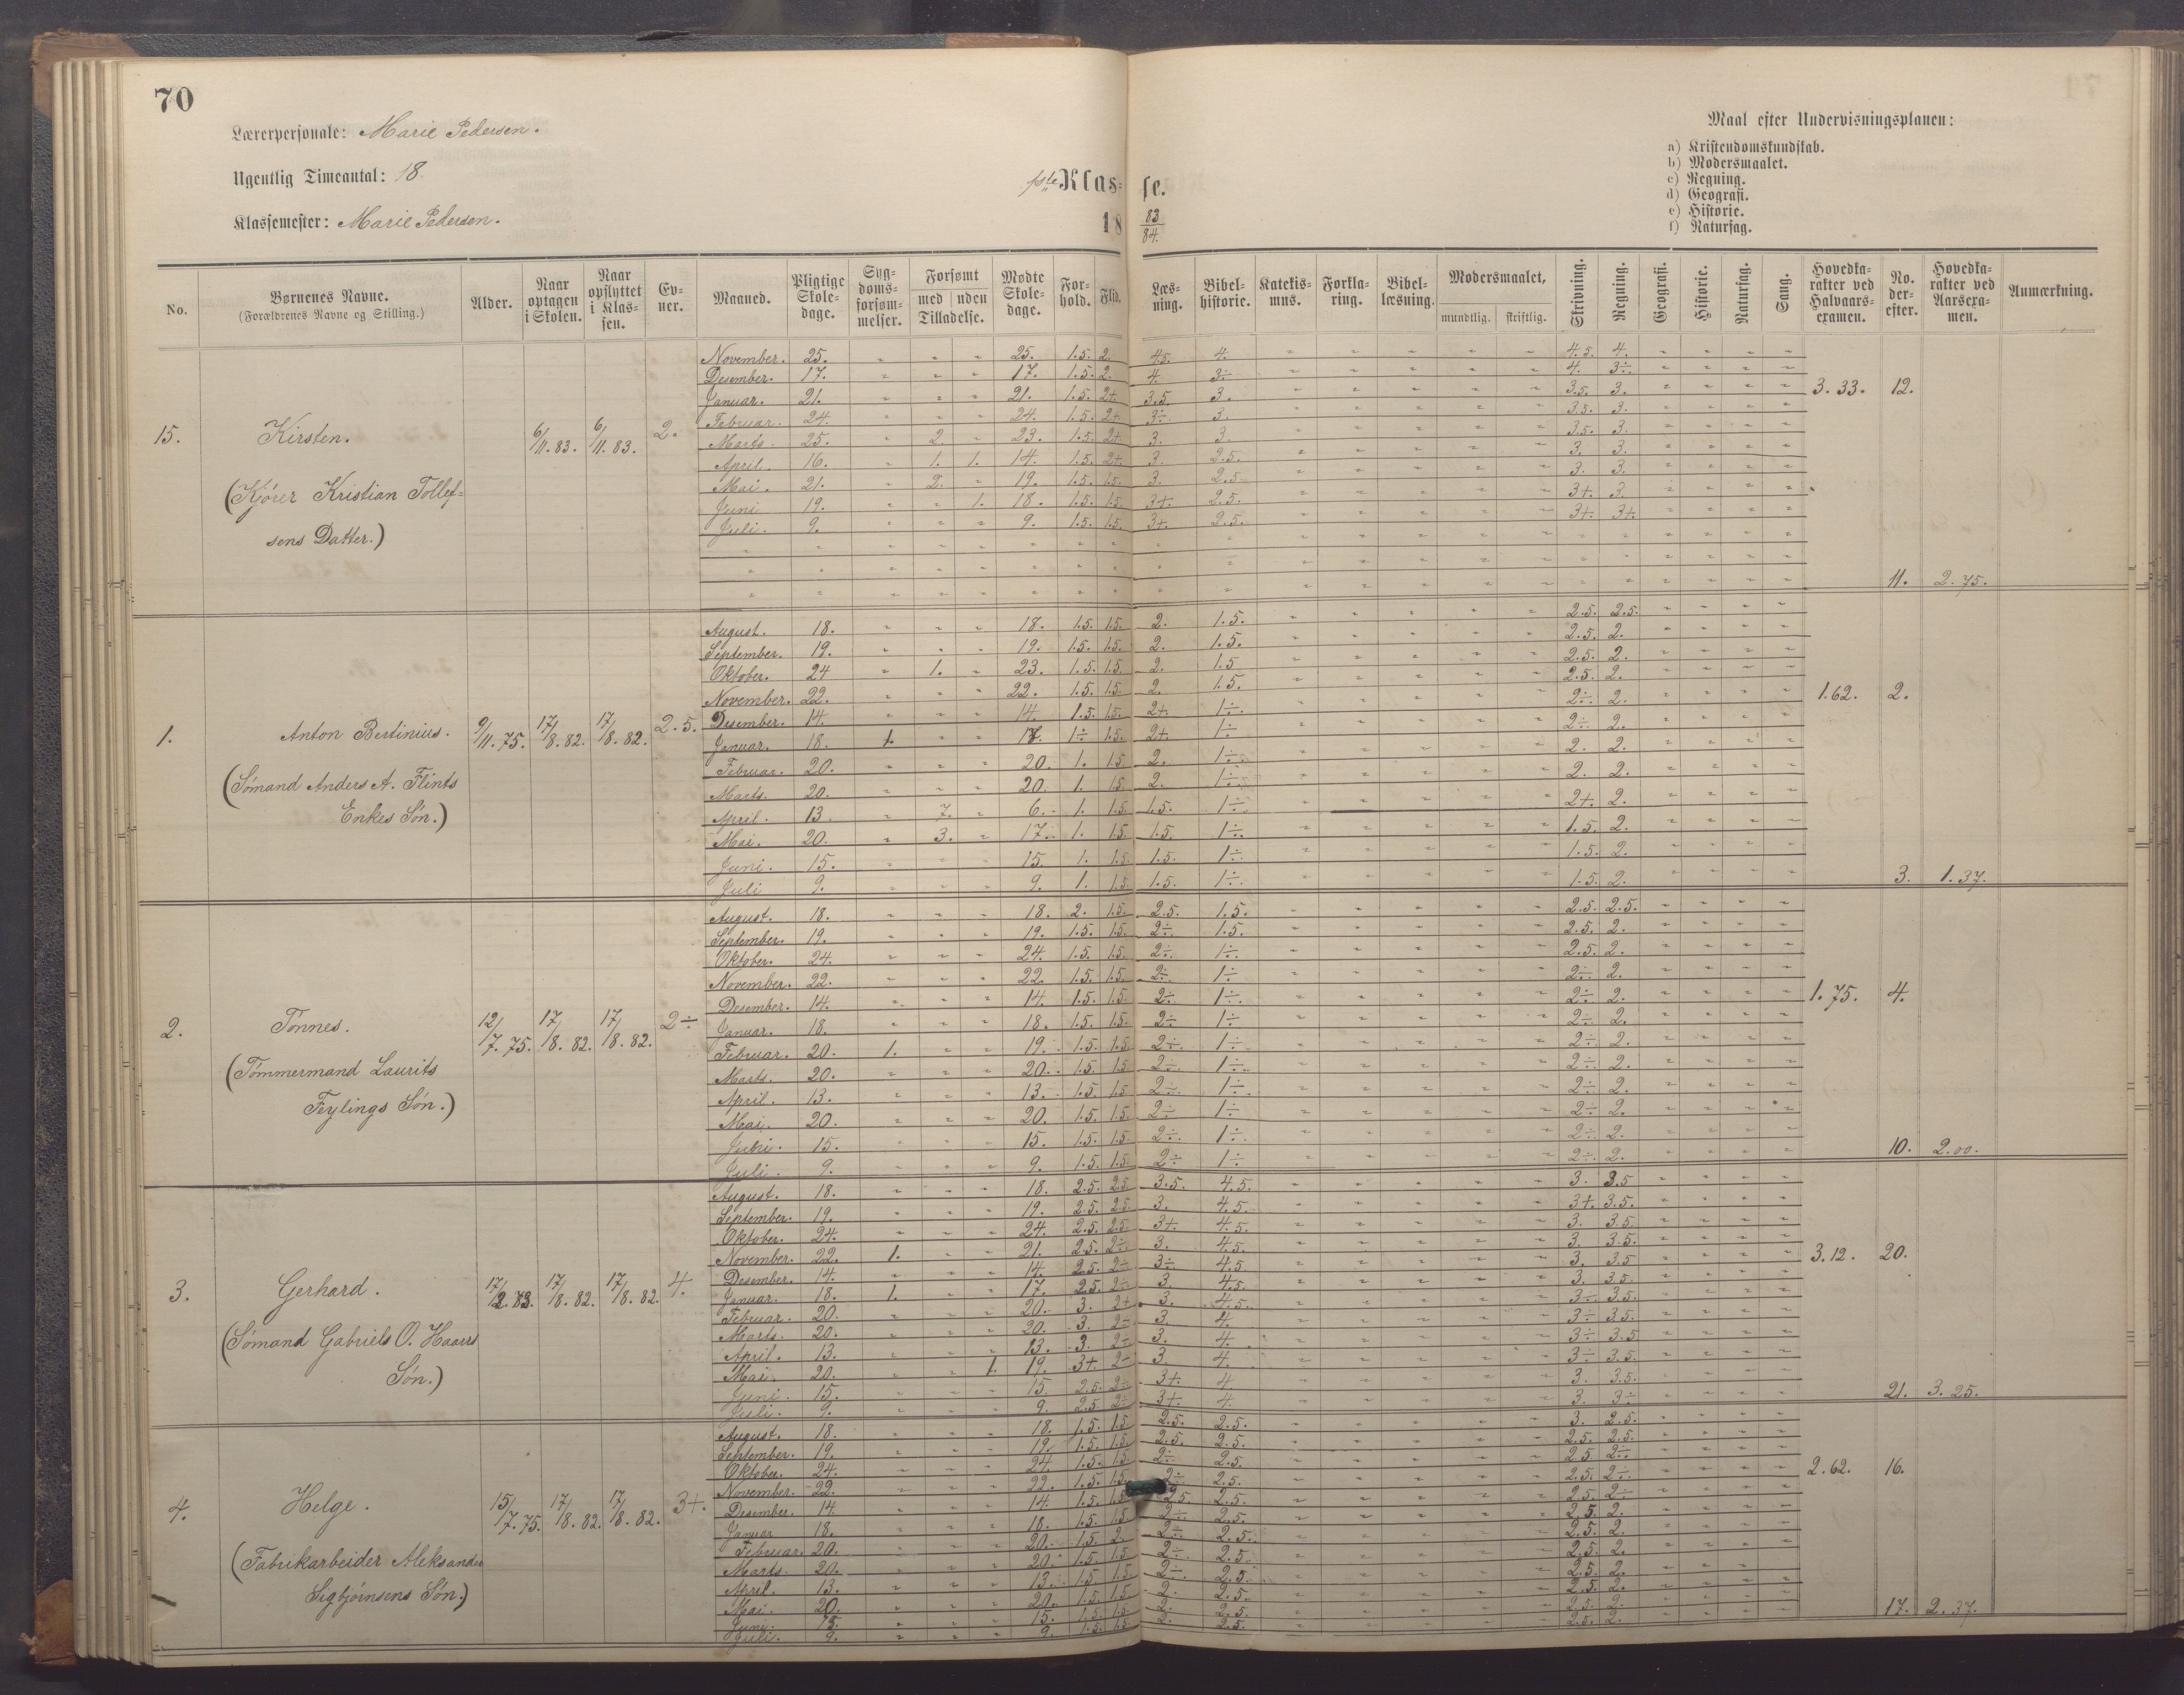 70
Lærerpersonale: Marie Pedersen.
Ugentlig Timeantal: 18.
Klassemester: Marie Pedersen.
1ste Klasse.
18 83/84.
Maal efter Undervisningsplanen:
a) Kristendomskundskab.
b) Modersmaalet.
c) Regning.
d) Geografi.
e) Historie.
f) Naturfag.
No. | Børnenes Navne. (Forældrenes Navne og Stilling.) | Alder. | Naar optagen i Skolen. | Naar opflyttet i Klassen. | Evner. | Maaned. | Pligtige Skoledage. | Sygdomsforsømmelser. | Forsømt med Tilladelse. | uden Tilladelse. | Mødte Skoledage. | Forhold. | Flid. | Læsning. | Bibelhistorie. | Katekismus. | Forklaring. | Bibellæsning. | Modersmaalet, mundtlig. | skriftlig. | Skrivning. | Regning. | Geografi. | Historie. | Naturfag. | Sang. | Hovedkarakter ved Halvaarsexamen. | No. derefter. | Hovedkarakter ved Aarsexamen. | Anmærkning.
15. Kirsten. 6/11. 83. 6/11. 83. 2.
(Kjører Kristian Tollef=
sens Datter.)
November. 25. 25. 1.5. 2. 4.5. 4. 4.5. 4.
Desember. 17. 17. 1.5. 2. 4. 3÷ 4. 3÷.
Januar. 21. 21. 1.5. 2+. 3.5. 3. 3.5. 3. 3.33. 12.
Februar. 24. 24. 1.5. 2+. 3÷ 3. 3.5. 3.
Marts. 25. 2. 23. 1.5. 2+. 3. 3. 3.5. 3.
April. 16. 1. 1. 14. 1.5. 2+. 3. 2.5. 3. 3.
Mai. 21. 2. 19. 1.5. 1.5. 3. 2.5. 3. 3.
Juni 19. 1. 18. 1.5. 1.5. 3+. 2.5. 3+. 3.
Juli. 9. 9. 1.5. 1.5. 3+. 2.5. 3+. 3+.
11. 2.75.
1. Anton Bertinius. 9/11. 75. 17/8. 82. 17/8. 82. 2.5.
(Sømand Anders A. Flints
Enkes Søn.)
August. 18. 18. 1.5. 1.5. 2. 1.5. 2.5. 2.5.
September. 19. 19. 1.5. 1.5. 2. 1.5. 2.5. 2.
Oktober. 24 1. 23. 1.5. 1.5. 2. 1.5 2.5. 2.
November. 22. 22. 1.5. 1.5. 2. 1.5. 2.5. 2.
Desember. 14. 14. 1.5. 1.5. 2+. 1÷. 2÷. 2. 1.62. 2.
Januar. 18. 1. 17. 1÷ 1.5. 2+. 1÷ 2÷. 2.
Februar. 20. 20. 1. 1.5 2. 1÷. 2. 2.
Marts. 20. 20. 1. 1.5. 2. 1÷. 2. 2.
April. 13. 7. 6. 1. 1.5. 1.5. 1÷ 2+. 2.
Mai. 20. 3. 17. 1. 1.5. 1.5. 1÷. 1.5. 2.
Juni. 15. 15. 1. 1.5. 1.5. 1÷. 1.5. 2.
Juli 9. 9. 1. 1.5. 1.5. 1÷. 1.5. 2. 3. 1.37.
2. Tønnes. 12/7. 75. 17/8. 82. 17/8. 82. 2÷
(Tømmermand Laurits
Feylings Søn.)
August. 18. 18. 2. 1.5. 2.5. 1.5. 2.5. 2.5.
September. 19. 19. 1.5. 1.5. 2÷. 1.5. 2.5. 2.
Oktober. 24. 24. 1.5. 1.5. 2÷. 1÷. 2.5. 2.
November. 22. 22. 1.5. 1.5. 2÷. 1÷. 2÷. 2.
Desember. 14. 14. 1.5. 1.5. 2÷ 1÷. 2÷. 2. 1.75. 4.
Januar. 18. 18. 1.5. 1.5. 2÷ 1÷. 2÷. 2.
Februar. 20. 1. 19. 1.5. 1.5 2÷. 1÷. 2÷ 2.
Marts. 20. 20. 1.5. 1.5 2÷. 1÷. 2÷. 2.
April. 13. 13. 1.5. 1.5. 2÷. 1÷. 2÷ 2.
Mai. 20. 20. 1.5. 1.5. 2÷. 1÷ 2÷ 2.
Juni. 15. 15. 1.5. 1.5. 2÷. 1÷. 2÷. 2.
Juli. 9. 9. 1.5. 1.5. 2÷ 1÷. 2÷. 2. 10. 2.00.
3. Gerhard. 17/8. 82. 17/8. 82. 4.
(Sømand Gabriels O. Haarrs
Søn.)
August. 18. 18. 2.5. 2.5 3.5. 4.5. 3. 3.5
September. 19. 19. 2.5. 2.5. 3. 4.5. 3+. 3.5.
Oktober. 24. 24. 2.5. 2.5. 3+. 4.5. 3. 3.5.
November. 22. 1. 21. 2.5. 2÷. 3. 4.5. 3. 3.5.
Desember. 14. 14. 2.5. 2÷ 3÷ 4.5. 3. 3.5 3.12. 20.
Januar. 18. 1. 17. 2.5. 2÷ 3. 4.5. 3. 3.5.
Februar. 20. 20. 3. 2+ 3. 4.5. 3÷ 3.5.
Marts. 20. 20. 3. 2÷ 3. 4. 3÷ 3.5.
April. 13. 13. 3. 2÷ 3. 4. 3÷ 3.5
Mai. 20. 1. 19. 3+. 2÷ 3. 4. 3÷ 3.5.
Juni. 15. 15. 2.5. 2÷ 3+. 4 3. 3.5.
Juli. 9. 9. 2.5. 2÷ 3+. 4. 3. 3÷ 21. 3.25.
4. Helge. 15/7. 75. 17/8. 82. 17/8. 82. 3+.
(Fabrikarbeider Aleksander
Sigbjørnsens Søn.)
August. 18. 18. 1.5. 1.5. 2.5. 2.5. 3. 2.5.
September. 19. 19. 1.5. 1.5. 2.5. 2.5. 2.5. 2.5.
Oktober. 24. 24. 1.5. 1.5. 2÷ 2.5. 2.5 2÷.
November. 22. 22. 1.5. 1.5. 2÷ 2.5. 2.5. 2÷. 2.62. 16.
Desember. 14. 14. 1.5. 1.5 2.5. 2.5. 2.5. 2÷
Januar 18. 18. 1.5. 1.5. 2÷ 2.5. 2.5 2.
Februar. 20. 20. 1.5 2. 2÷. 2.5. 2.5. 2.
Marts. 20. 20. 1.5. 1.5 2÷. 2.5. 2.5. 2.
April. 13. 13. 1.5 1.5. 2÷. 2.5. 2.5 2.
Mai. 20. 20. 1.5. 1.5. 2. 2.5. 2.5 2.
Juni. 15. 15. 1.5. 1.5. 2. 2.5. 2.5. 2.
Juli. 9. 9. 1.5. 1.5. 2. 2.5. 2.5. 2. 17. 2.37.